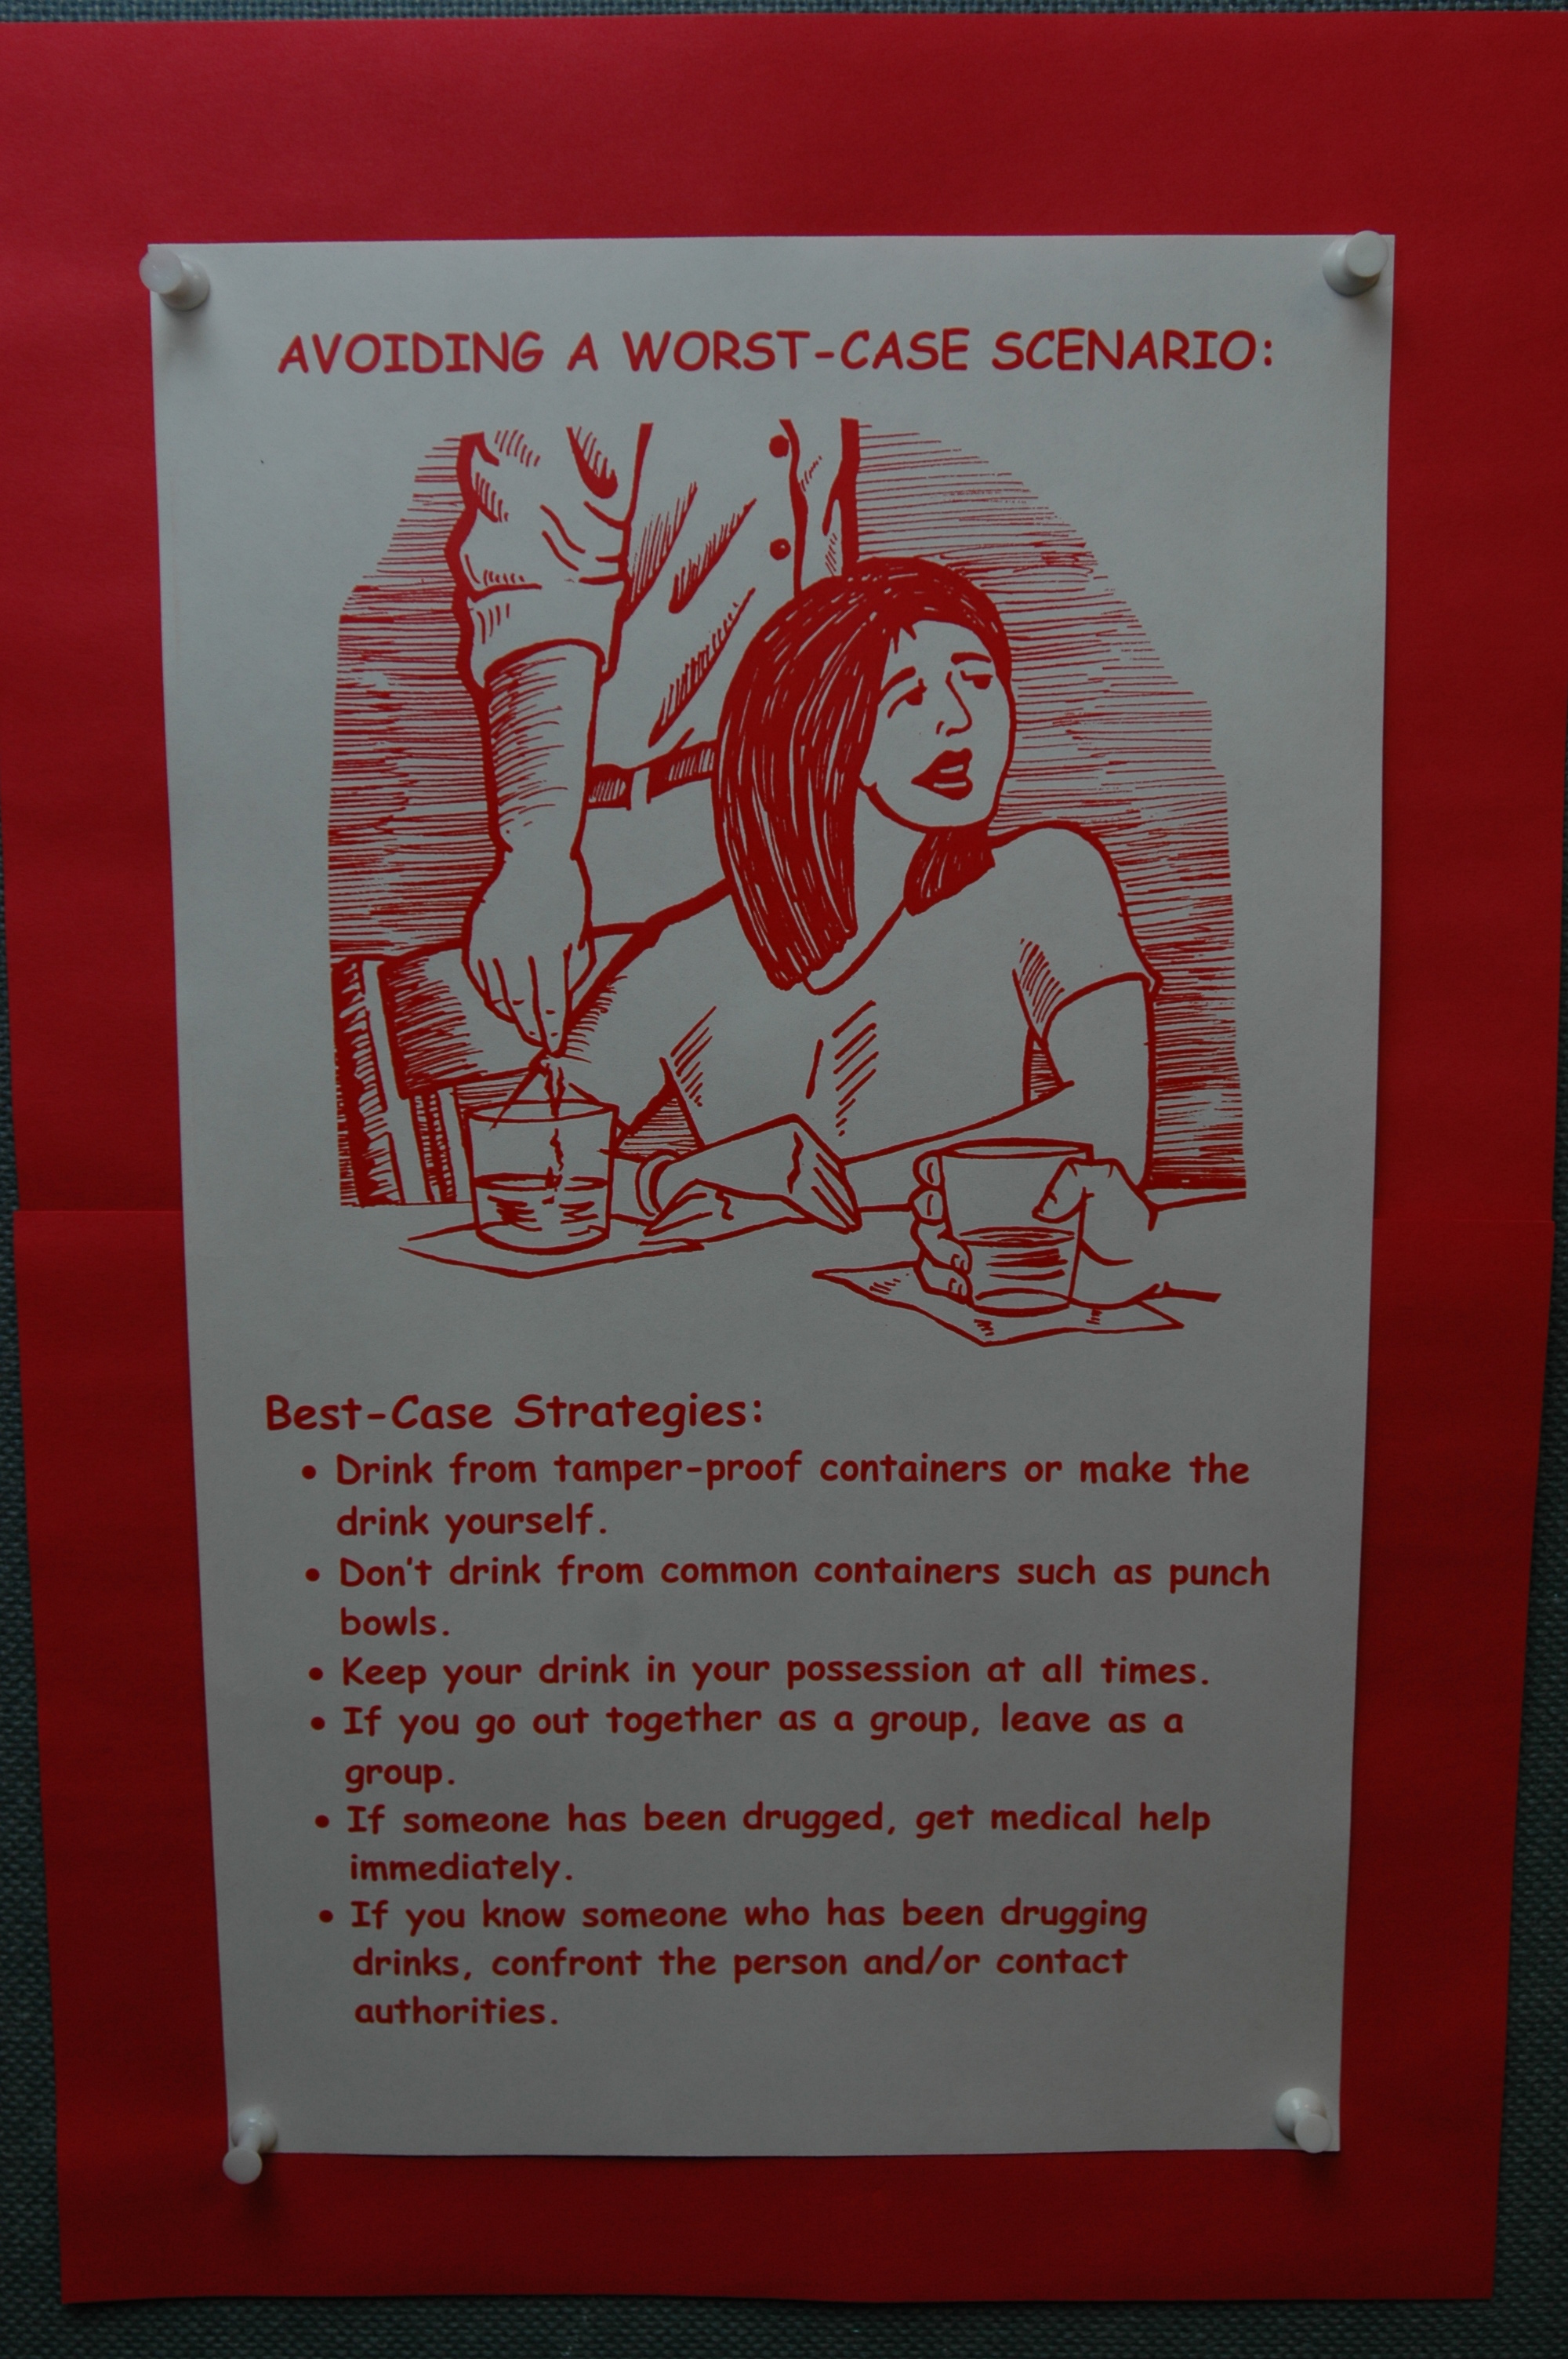 AVOIDING A WORST-CASE SCENARIO:
Best-Case Strategies:
• Drink from tamper-proof containers or make the
drink yourself.
• Don't drink from common containers such as punch
bowls.
• Keep your drink in your possession at all times.
• If you go out together as a group, leave as a
group.
• If someone has been drugged, get medical help
immediately.
• If you know someone who has been drugging
drinks, confront the person and/or contact
authorities.